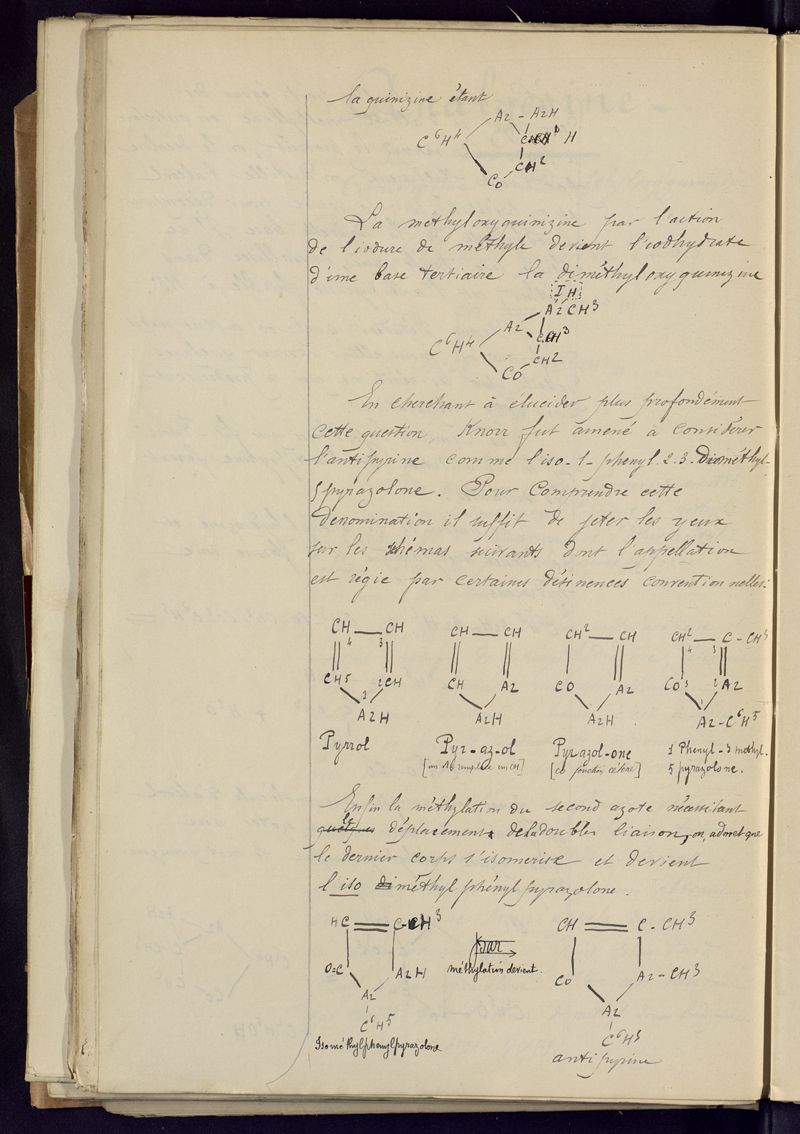 la quinizine étant
Az - AzH
C⁶H⁴
CH H
CH²
Co
La methyloxyquinizine par l'action
de l'iodure de méthyle devient l'iodhydrate
d'une base tertiaire la diméthyloxyquinizine
IH
Az CH³
Az
C⁶H⁴
CCH³
CH²
CO
En cherchant à élucider plus profondément
cette question, Knorr fut amené à considérer
l'antipyrine comme l'iso-1-phenyl.2.3-Diméthyl-
5 pyrazolone. Pour Comprendre cette
dénomination il suffit de jeter les yeux
sur les schémas suivants dont l'appellation
est régie par certaines désinences conventionnelles:
CH — CH CH — CH CH² — CH CH² — C - CH³
4 3 4 3
CH 5 2 CH CH Az CO Az CO 5 2 Az
1
AzH AzH AzH Az - C⁶H⁵
Pyrrol Pyr-az-ol Pyrazol-one 1 Phenyl-3 methyl.
[un Az remplace un CH] [co fonction cétone] 5 pyrazolone.
Enfin la méthylation du second azote nécessitant
quelques le déplacement de la double liaison, on admet que
le dernier corps s'isomerise et devient
l'iso diméthyl phényl pyrazolone.
HC = C-CH³ par CH = C - CH³
O=C AzH méthylation devient. Co Az-CH³
Az Az
C⁶H⁵ C⁶H⁵
Isométhylphenylpyrazolone antipyrine